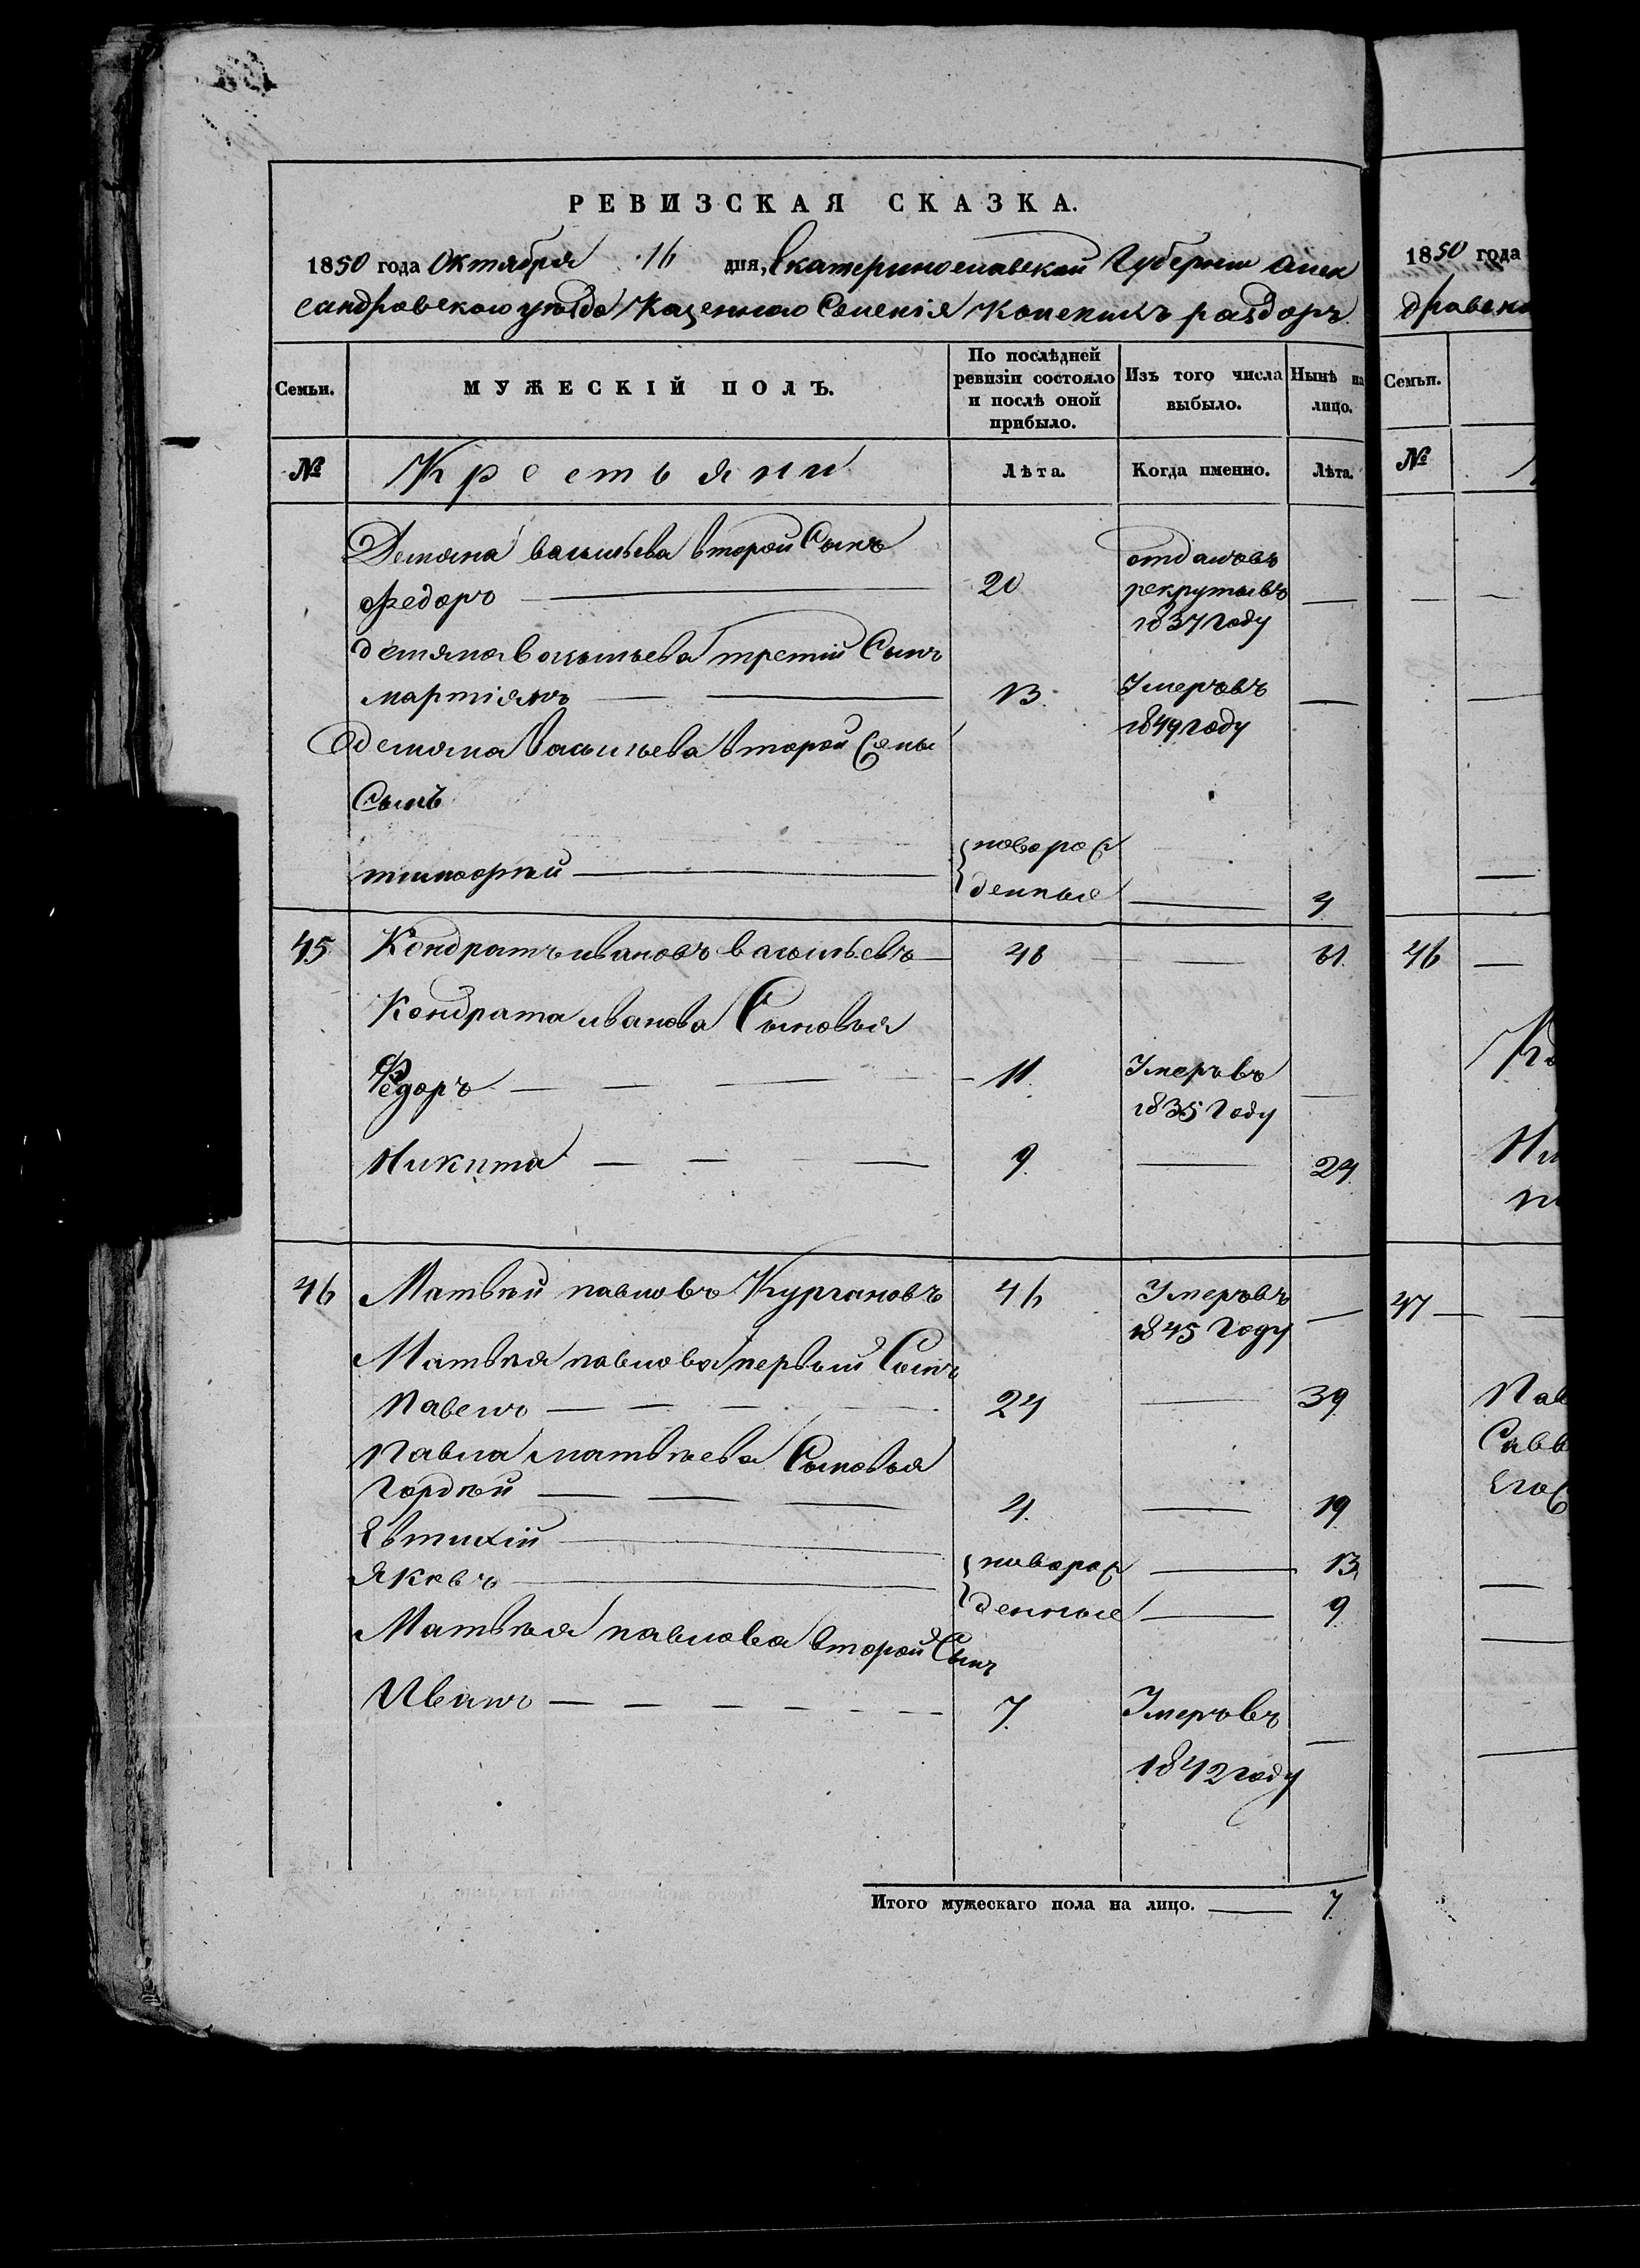 РЕВИЗСКАЯ СКАЗКА.
1850 года Октября 16 дня, Екатеринославской Губернии Алек
сандровского уезда Казенного Селения Конскихъ раздоръ
Семьи. МУЖЕСКІЙ ПОЛЪ. По послѣдней ревизіи состояло и послѣ оной прибыло. Изъ того числа выбыло. Нынѣ на лицо.
№ Крестьяни Лѣта. Когда именно. Лѣта.
Демяна васильева второй Сынъ
федоръ 20 отдановъ рекрутывъ 1837 году
демяна васильева третій Сынъ
мартіянъ 13. Умеръвъ 1849 году
демяна васильева второй Сены
Сынъ
тимофѣй новорож денные 4
45 Кондратъ ивановъ васильевъ 46 61.
Кондрата иванова Сыновья
Федоръ 11. Умеръвъ 1835 году
Никита 9. 24.
46 Матвѣй павловъ Кургановъ 46 Умеръвъ 1845 году
Матвѣя павлова первый Сынъ
Павелъ 24 39.
Павла матвѣева Сыновья
Гордѣй 4. 19
Евтихій новорож 13,
Яковъ денные 9.
Матвѣя павлова второй Сынъ
Иванъ 7. Умеръвъ
1842 году
Итого мужескаго пола на лицо. 7.
1850 года
Семьи.
№
46
47
Пав
Савв